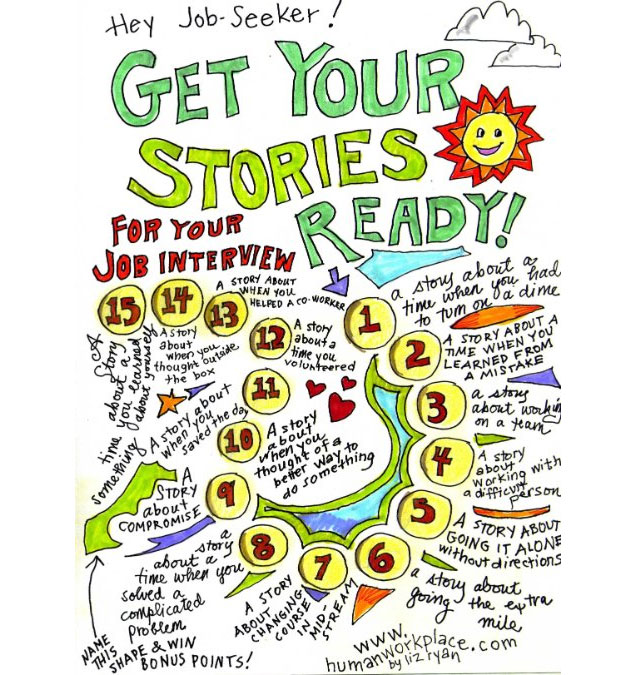 Hey Job-Seeker!
GET YOUR
STORIES
READY!
FOR YOUR
JOB INTERVIEW
1
a story about a
time when you had
to turn on a dime
2
A STORY ABOUT A
TIME WHEN YOU
LEARNED FROM
A MISTAKE
3
a story
about working
on a team
4
A STORY
about
working with
a difficult
person
5
A STORY ABOUT
GOING IT ALONE
without directions
6
a story about
going the extra
mile
7
A STORY
ABOUT
CHANGING
COURSE
IN
MID-
STREAM
8
a story
about a
time when you
solved a
complicated
problem
9
A
STORY
about
COMPROMISE
10
A story
about
when you
thought of a
better way to
do something
11
A story about
when you
saved the day
12
A story
about a
time you
volunteered
13
A STORY ABOUT
WHEN YOU
HELPED A CO-WORKER
14
A story
about
when you
thought outside
the box
15
A
story
about a
time you learned
something
about yourself
NAME
THIS
SHAPE & WIN
BONUS POINTS!
www.
humanworkplace.com
by liz ryan